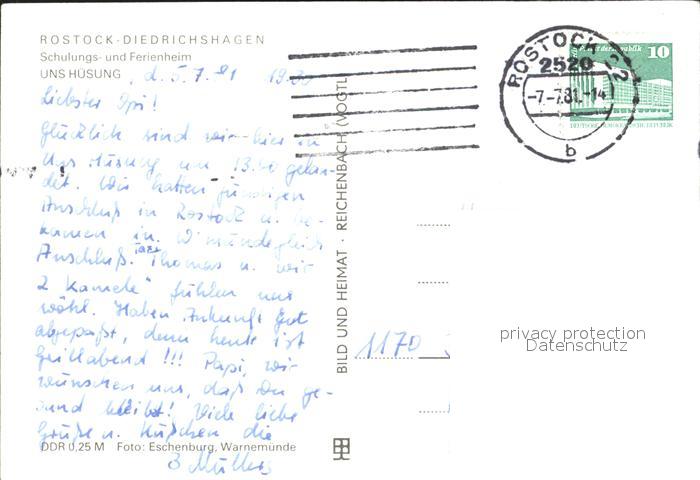 ROSTOCK-DIEDRICHSHAGEN
Schulungs- und Ferienheim
UNS HÜSUNG , d. 5.7.81 19.30
Liebster Opi!
Glücklich sind wir hier in
Uns Hüsung um 13.50 gelan-
det. Wir hatten günstigen
Anschluß in Rostock u. be-
kamen in W'münde gleich
Anschluß. Taxi Thomas u. wir
2 "Kamele" fühlen uns
wohl. Haben Ankunft gut
abgepaßt, denn heute ist
Grillabend !!! Papi, wir
wünschen uns, daß Du ge-
sund bleibst! Viele liebe
Grüße u. Küßchen die
3 Müllers
DDR 0,25 M Foto: Eschenburg, Warnemünde
BILD UND HEIMAT · REICHENBACH (VOGTL
ROSTOCK 22
2520
-7.-7.81.-14
b
Palast der Republik 10
DEUTSCHE DEMOKRATISCHE REPUBLIK
1170
privacy protection
Datenschutz